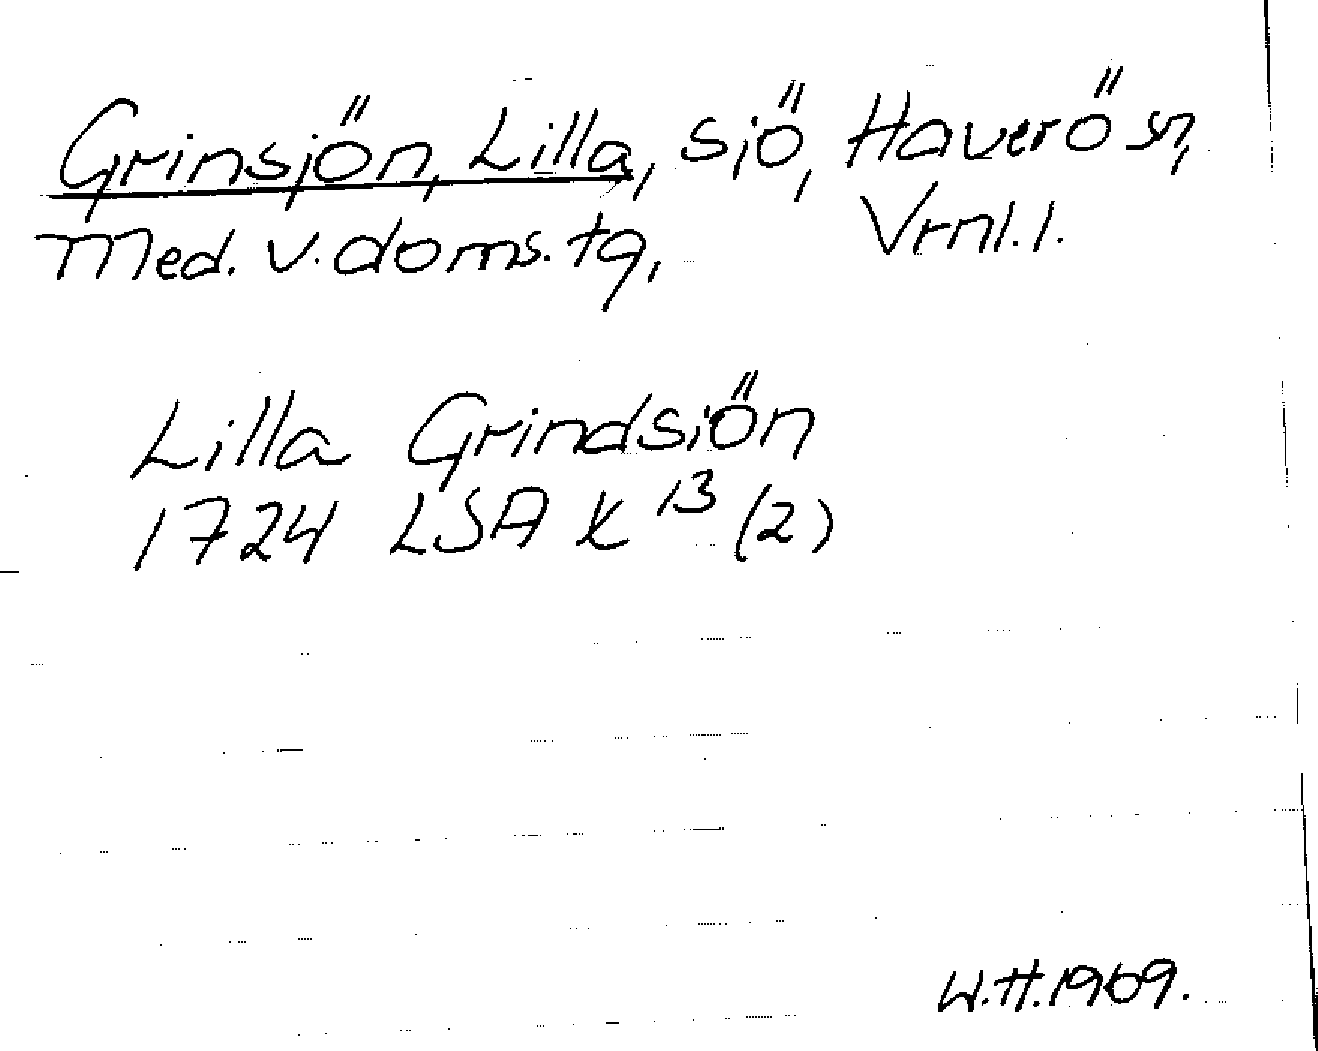 Grinsjön, Lilla, sjö, Haverö sn,
Med. v. doms. tg, Vrml. l.
Lilla Grindsiön
1724 LSA X 13 (2)
W.H. 1969.